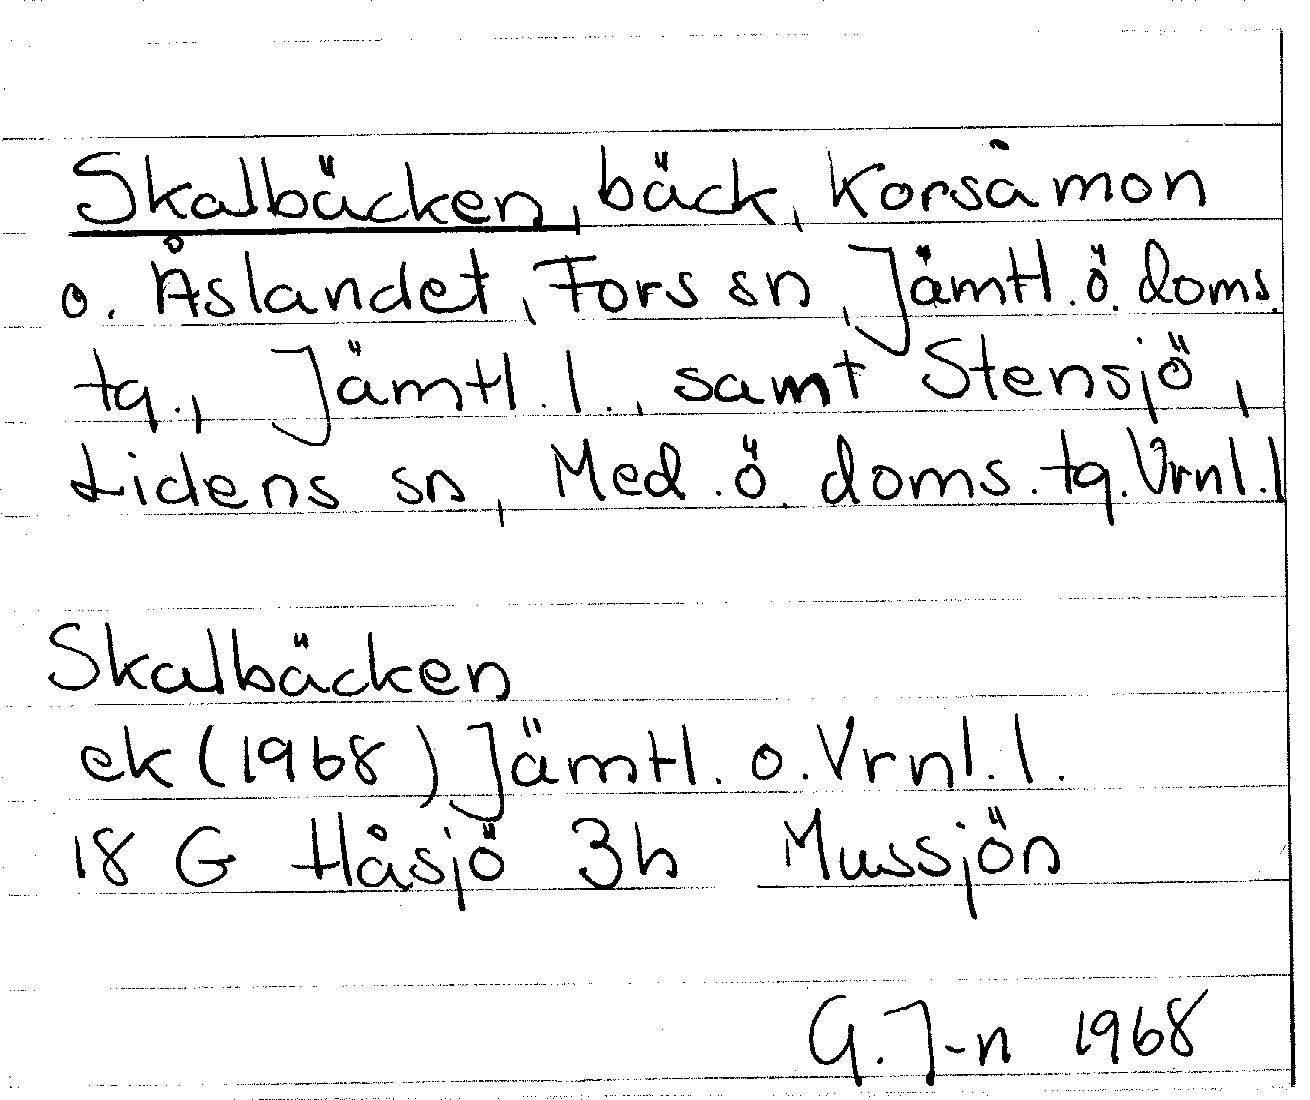 Skalbäcken, bäck, Korsåmon
o. Åslandet, Fors sn, Jämtl. ö. doms.
tg., Jämtl. l., samt Stensjö,
Lidens sn, Med. ö. doms. tg. Vrnl. l
Skalbäcken
ek (1968) Jämtl. o. Vrnl. l.
18 G Håsjö 3h Mussjön
G. J-n 1968